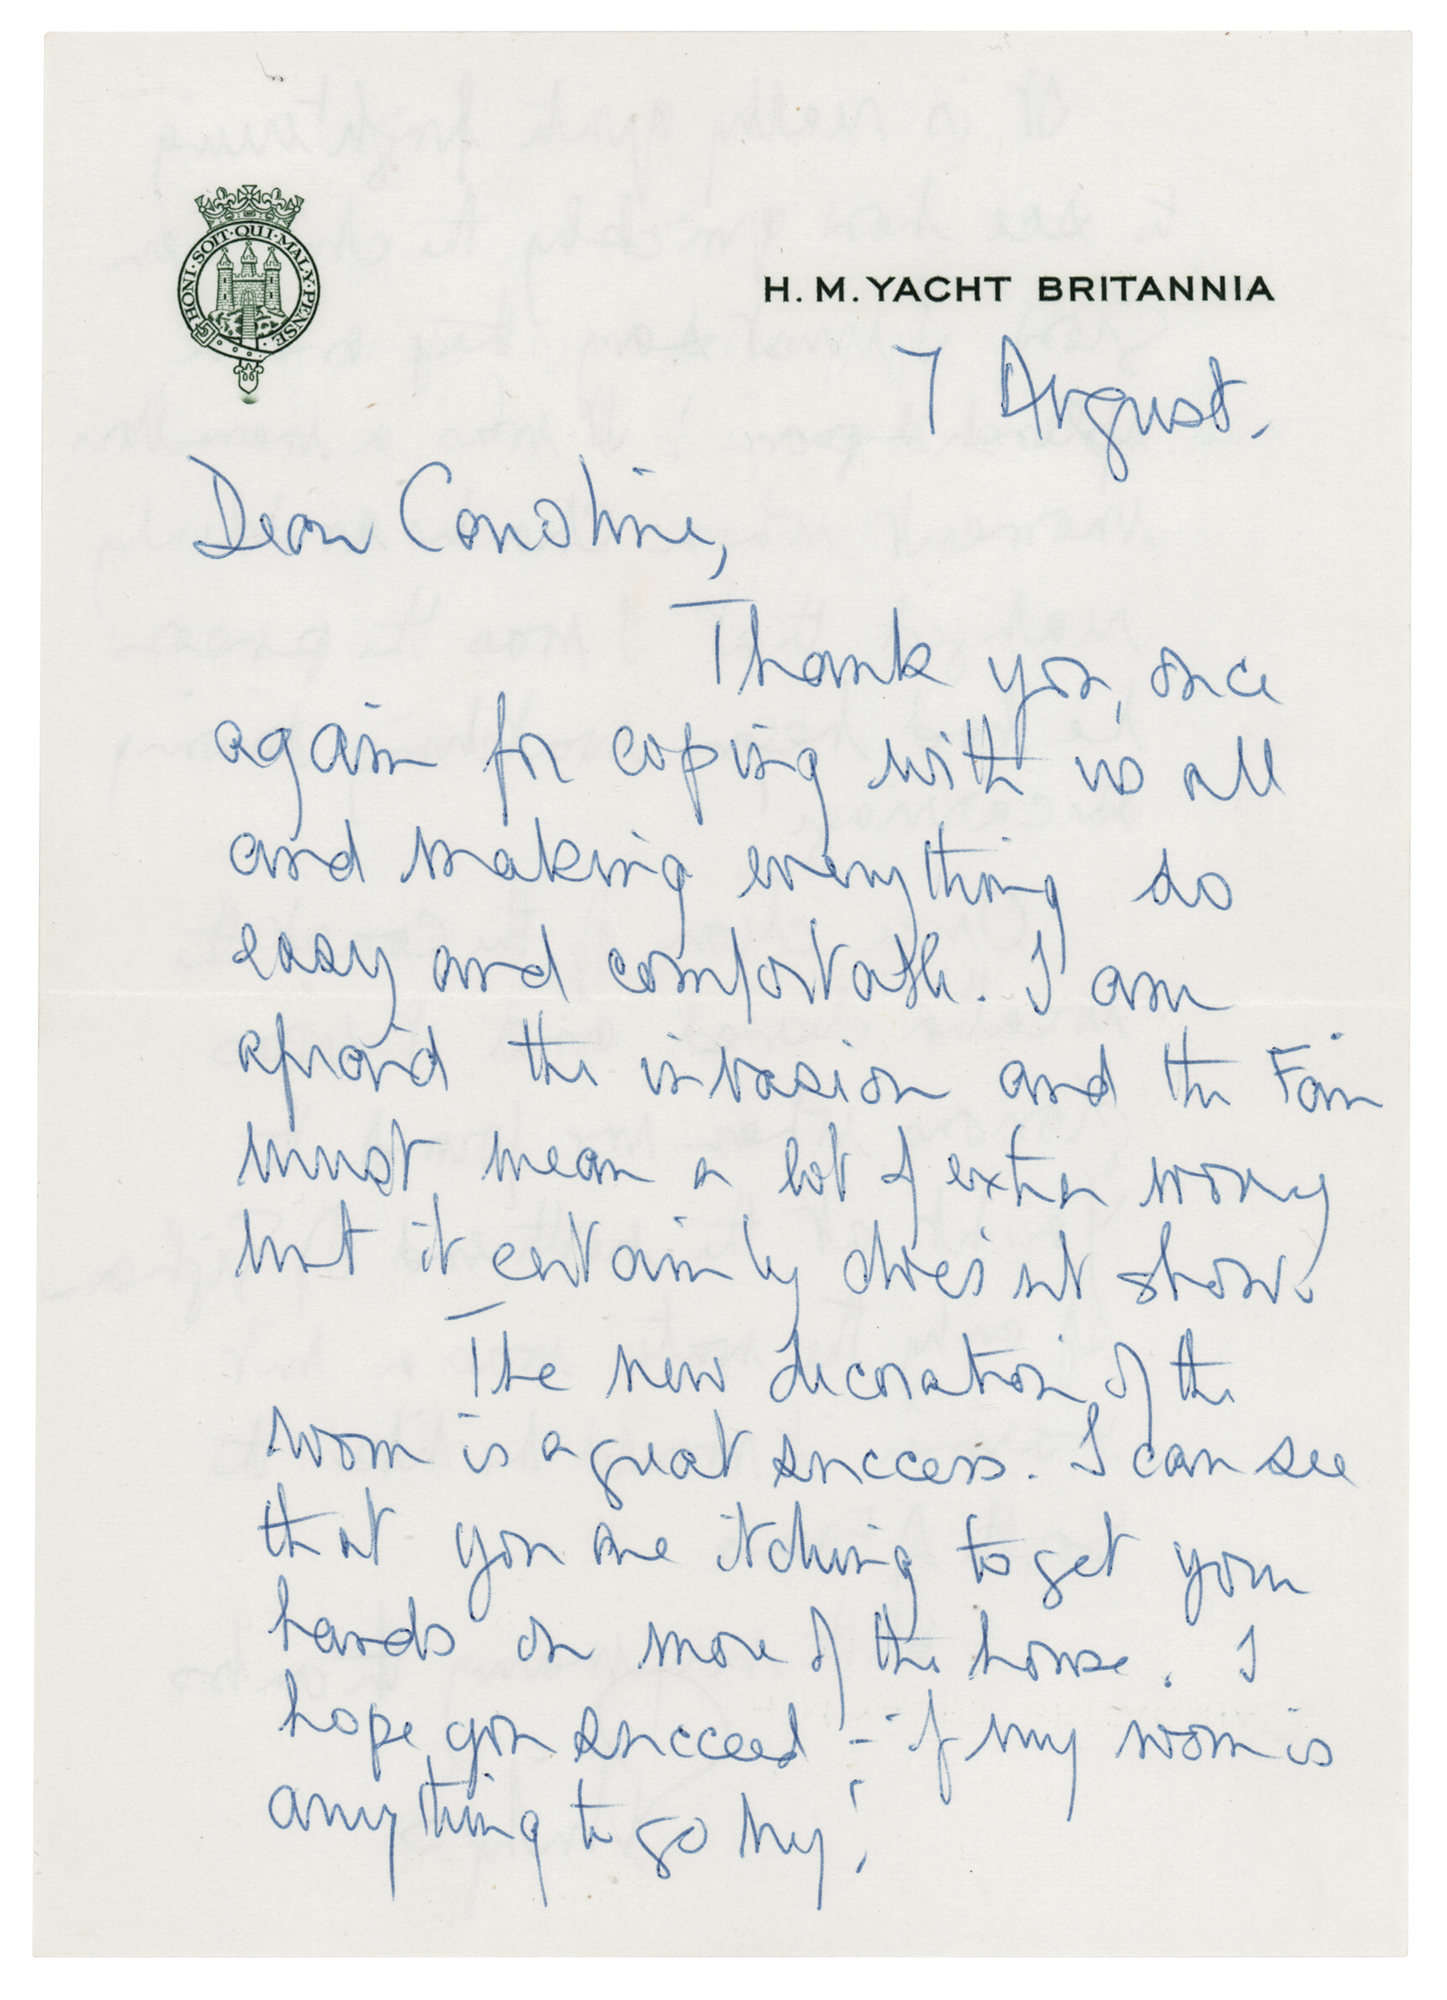 HONI·SOIT·QUI·MAL·Y·PENSE
H. M. YACHT BRITANNIA
7 August.
Dear Caroline,
Thank you, once
again for coping with us all
and making everything so
easy and comfortable. I am
afraid the invasion and the Fair
must mean a lot of extra worry
but it certainly does'nt show.
The new decoration of the
room is a great success. I can see
that you are itching to get your
hands on more of the house. I
hope you succeed - if my room is
anything to go by!